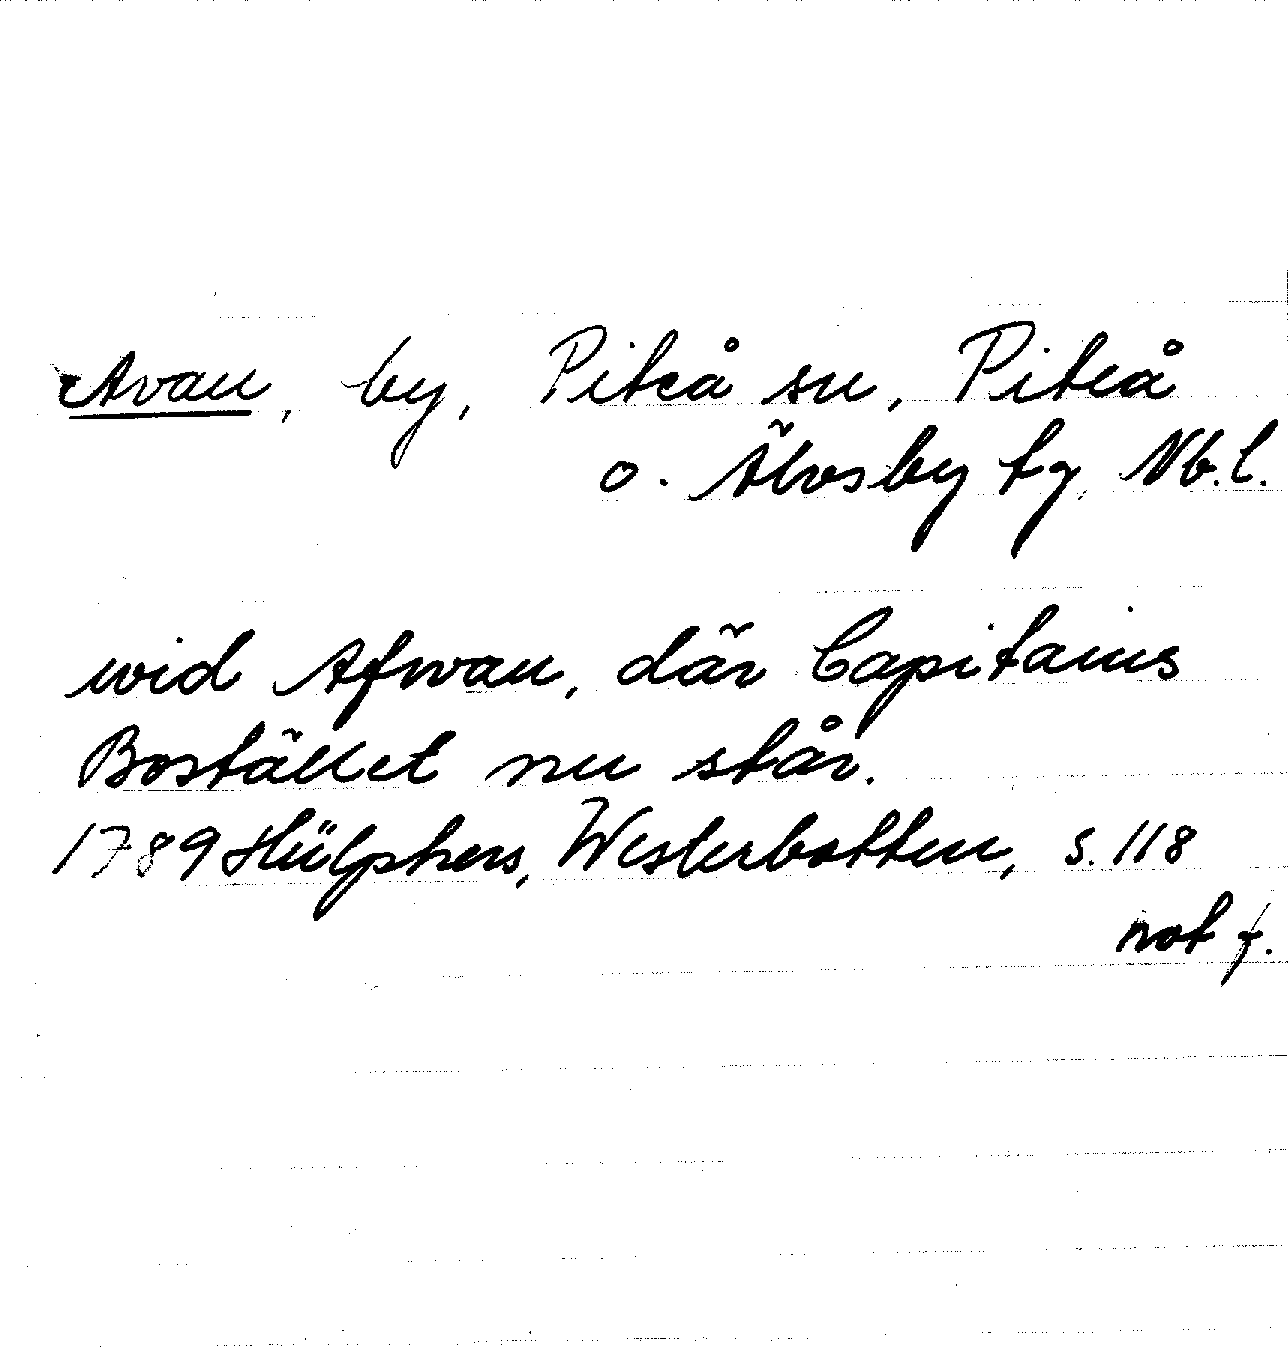 Avan, by, Piteå sn, Piteå
o. Älvsby tg, Nb.l.
wid Afwan, där Capitains
Bostället nu står.
1789 Hülphers, Westerbotten, s. 118
not f.